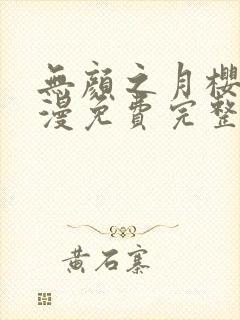 無顏之月櫻
漫免費完整
黃石寨